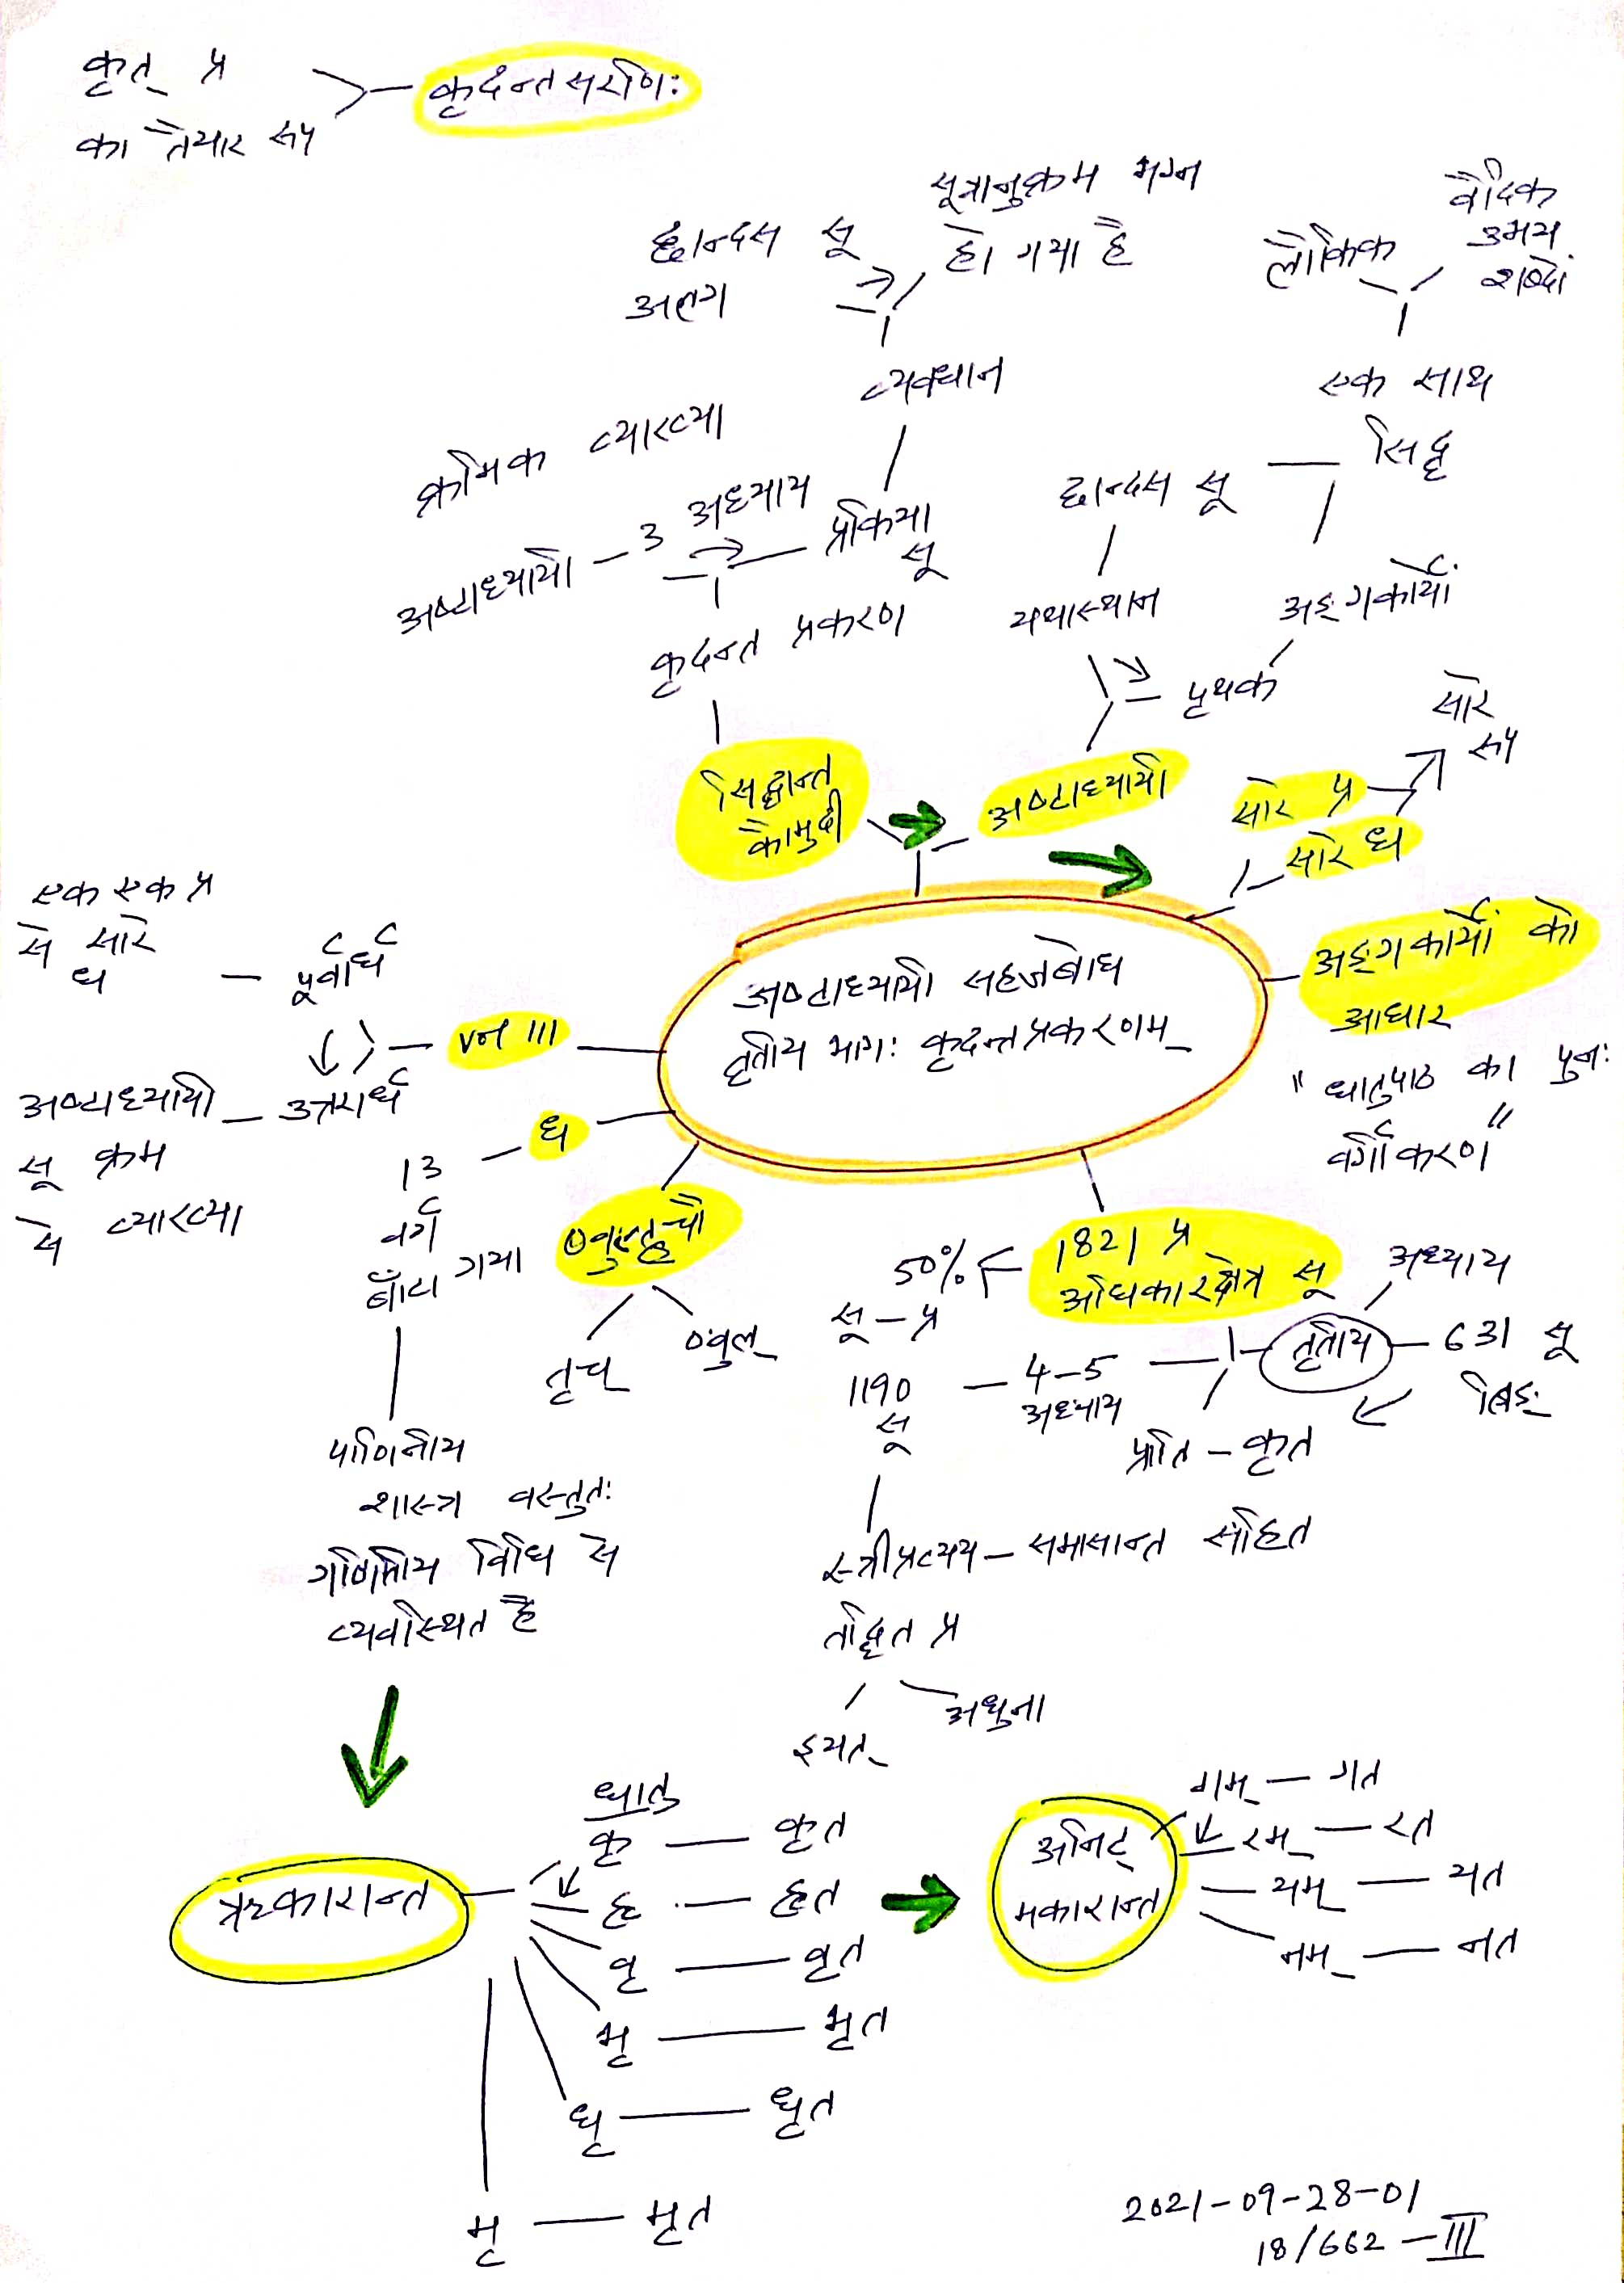 कृत् प्र
का तैयार रूप
कृदन्तसरणिः
छान्दस सू
अलग
सूत्रानुक्रम भग्न
हो गया है
लौकिक
वैदिक
उभय
शब्दों
व्यवधान
एक साथ
सिद्ध
क्रमिक व्याख्या
अष्टाध्यायी – 3 अध्याय
प्रक्रिया
सू
छान्दस सू
कृदन्त प्रकरण
यथास्थान
अङ्गकार्यों
पृथक
सिद्धान्त
कौमुदी
अष्टाध्यायी
सारे प्र
सारे ध
सारे
रूप
एक एक प्र
से सारे
ध
पूर्वार्ध
Vol III
अष्टाध्यायी
सू क्रम
से व्याख्या
उत्तरार्ध
अष्टाध्यायी सहजबोध
तृतीय भागः कृदन्तप्रकरणम्
अङ्गकार्यों को
आधार
" धातुपाठ का पुनः
वर्गीकरण "
ध
13
वर्ग
बाँटा गया
ण्वुल्तृचौ
तृच्
ण्वुल्
1821 प्र
अधिकारक्षेत्र सू
50%
सू – प्र
1190
सू
4–5
अध्याय
तृतीय
अध्याय
631 सू
तिङ्
प्रति – कृत
पाणिनीय
शास्त्र वस्तुतः
गणितीय विधि से
व्यवस्थित है
स्त्रीप्रत्यय – समासान्त सहित
तद्धित प्र
इयत्
अधुना
ऋकारान्त
धातु
कृ — कृत
हृ — हृत
वृ — वृत
भृ — भृत
धृ — धृत
मृ — मृत
अनिट्
मकारान्त
गम् — गत
रम् — रत
यम् — यत
नम् — नत
2021-09-28-01
18/662 – III